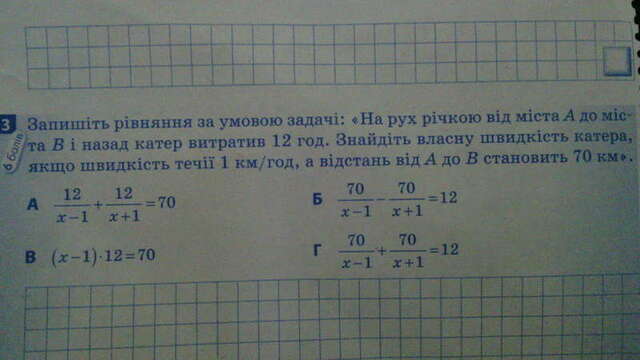 3 Запишіть рівняння за умовою задачі: «На рух річкою від міста A до міс-
6 балів та B і назад катер витратив 12 год. Знайдіть власну швидкість катера,
якщо швидкість течії 1 км/год, а відстань від A до B становить 70 км».
А 12/(x−1) + 12/(x+1) = 70
Б 70/(x−1) − 70/(x+1) = 12
В (x−1)·12=70
Г 70/(x−1) + 70/(x+1) = 12